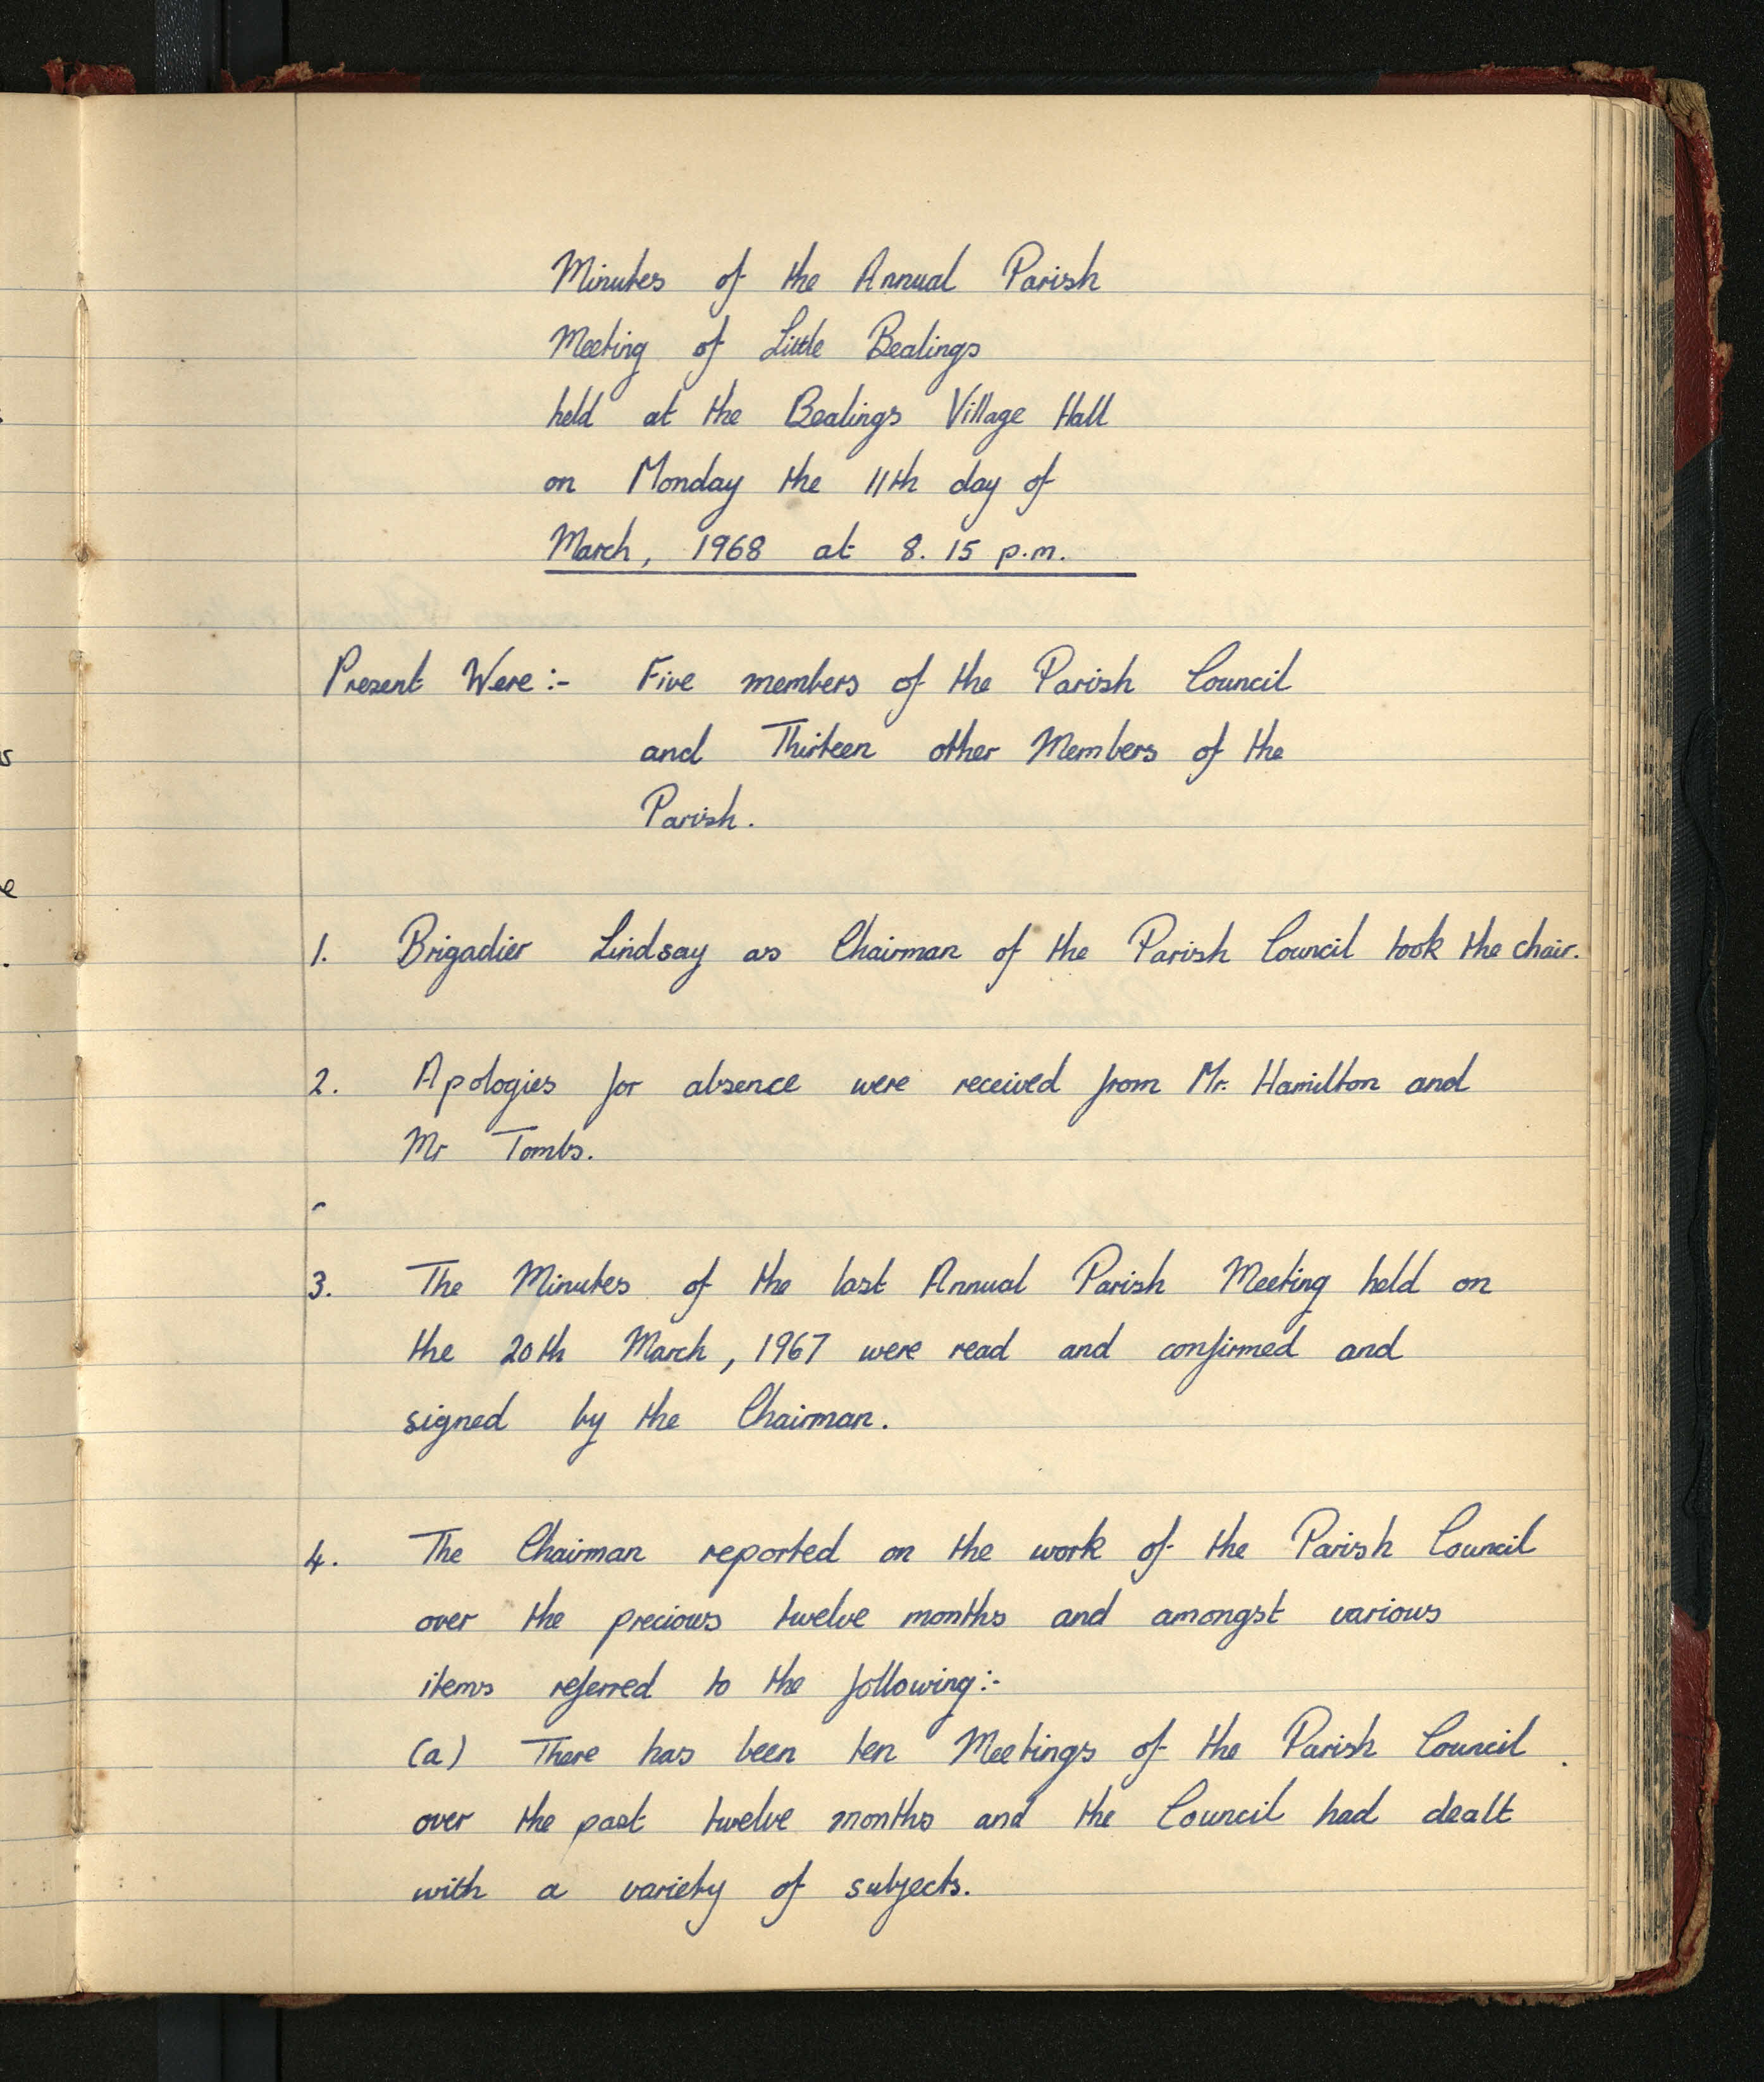 Minutes of the Annual Parish
Meeting of Little Bealings
held at the Bealings Village Hall
on Monday the 11th day of
March, 1968 at 8.15 p.m.
Present Were :- Five members of the Parish Council
and Thirteen other Members of the
Parish.
1. Brigadier Lindsay as Chairman of the Parish Council took the chair.
2. Apologies for absence were received from Mr. Hamilton and
Mr Tombs.
3. The Minutes of the last Annual Parish Meeting held on
the 20th March, 1967 were read and confirmed and
signed by the Chairman.
4. The Chairman reported on the work of the Parish Council
over the precious twelve months and amongst various
items referred to the following:-
(a) There has been ten Meetings of the Parish Council
over the past twelve months and the Council had dealt
with a variety of subjects.